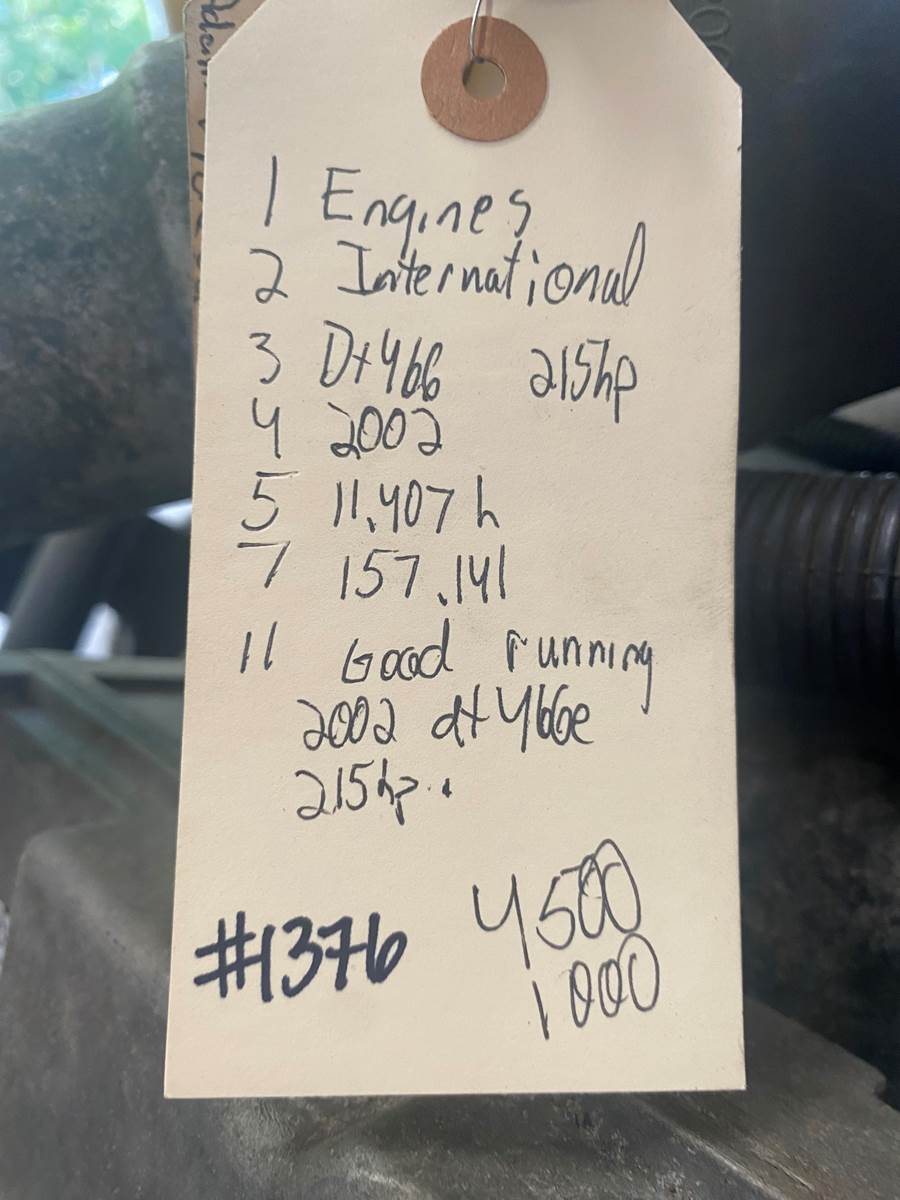 1 Engines
2 International
3 Dt466 215hp
4 2002
5 11,407 h
7 157,141
11 Good running
2002 dt466e
215hp.
#1376 4500
1000